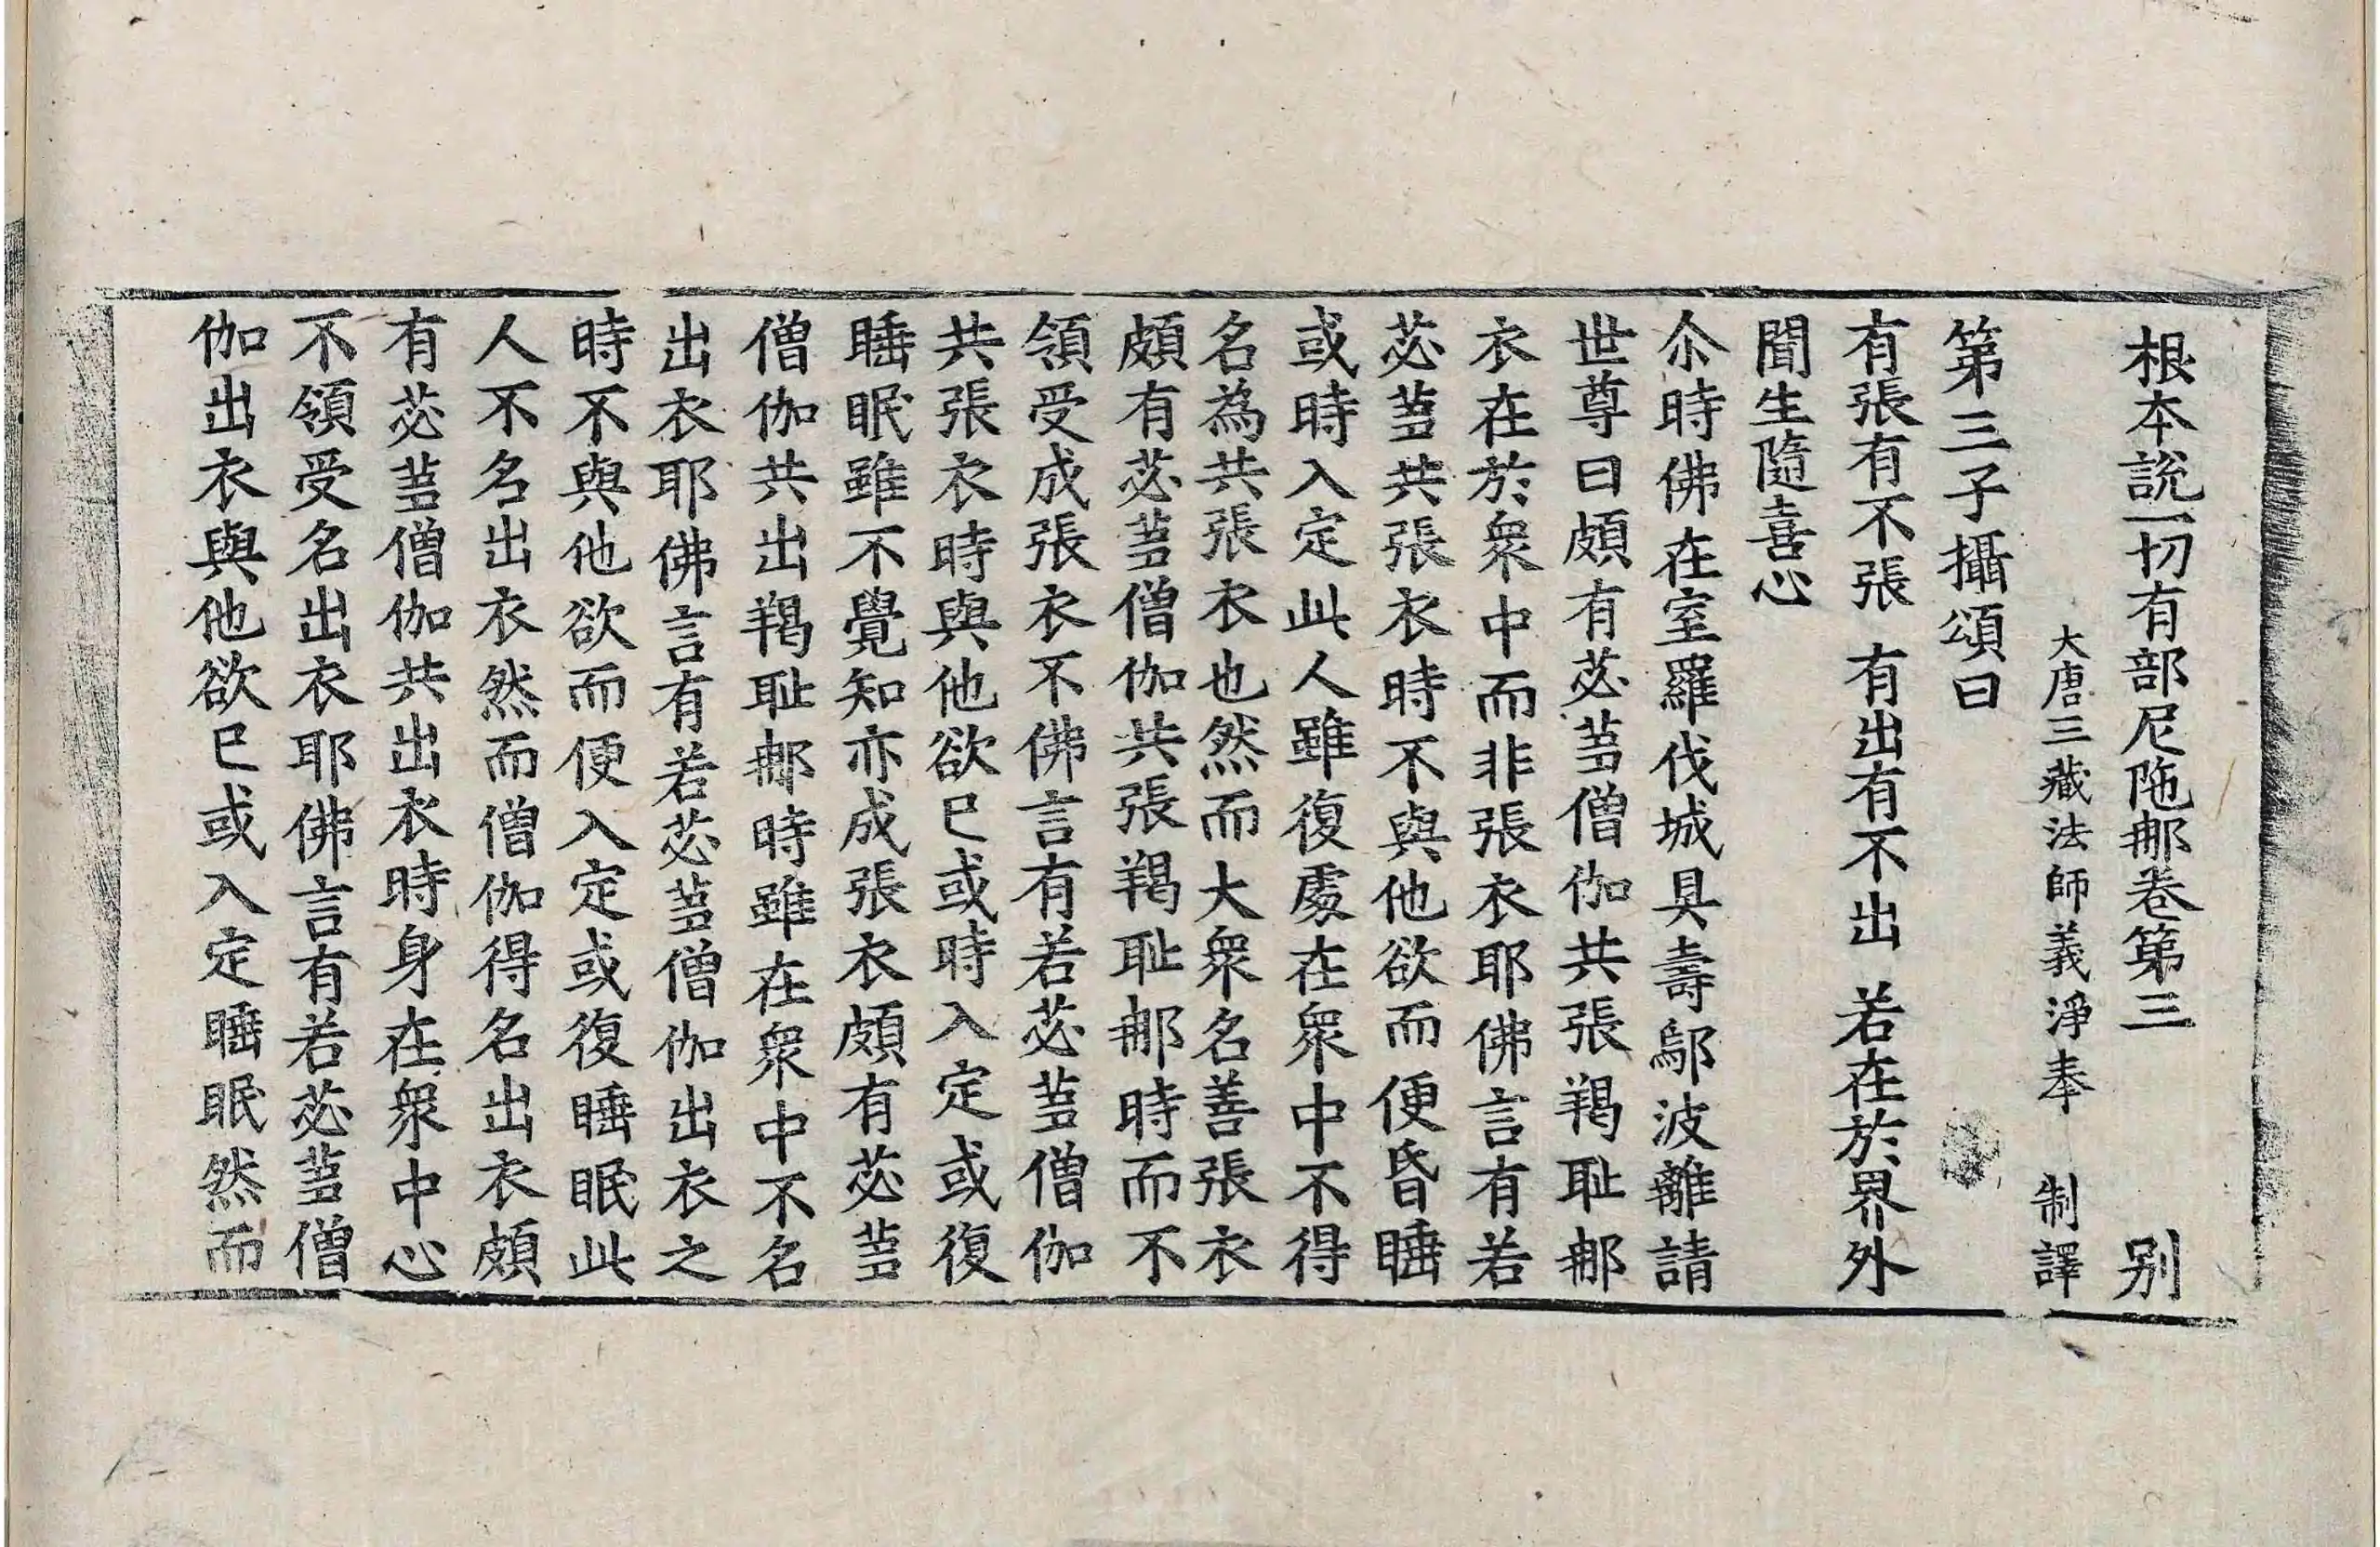 根本說一切有部尼陁那卷第三 別
大唐三藏法師義淨奉 制譯
第三子攝頌曰
有張有不張 有出有不出 若在於界外
聞生隨喜心
尒時佛在室羅伐城具壽鄔波離請
世尊曰頗有苾蒭僧伽共張羯耻那
衣在於衆中而非張衣耶佛言有若
苾蒭共張衣時不與他欲而便昏睡
或時入定此人雖復處在衆中不得
名為共張衣也然而大衆名善張衣
頗有苾蒭僧伽共張羯耻那時而不
領受成張衣不佛言有若苾蒭僧伽
共張衣時與他欲已或時入定或復
睡眠雖不覺知亦成張衣頗有苾蒭
僧伽共出羯耻那時雖在衆中不名
出衣耶佛言有若苾蒭僧伽出衣之
時不與他欲而便入定或復睡眠此
人不名出衣然而僧伽得名出衣頗
有苾蒭僧伽共出衣時身在衆中心
不領受名出衣耶佛言有若苾蒭僧
伽出衣與他欲已或入定睡眠然而